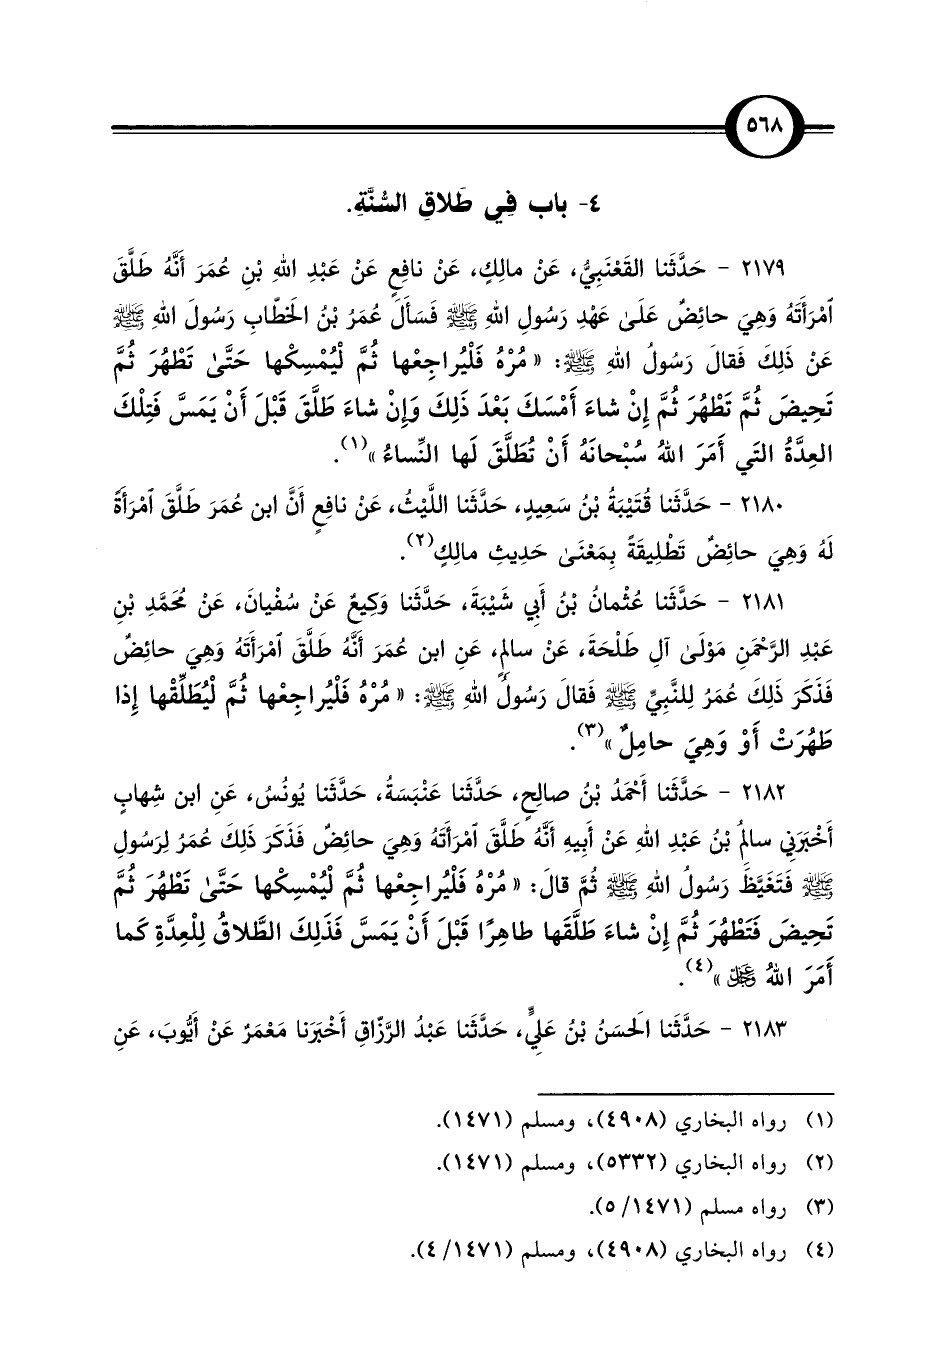 ٥٦٨
٤- باب فِي طَلاقِ السُّنَّةِ.
٢١٧٩ - حَدَّثَنا القَعْنَبِيُّ، عَنْ مالِكٍ، عَنْ نافِعٍ عَنْ عَبْدِ اللهِ بْنِ عُمَرَ أَنَّهُ طَلَّقَ
ٱمْرَأَتَهُ وَهِيَ حائِضٌ عَلَىٰ عَهْدِ رَسُولِ اللهِ ﷺ فَسَأَلَ عُمَرُ بْنُ الخَطّابِ رَسُولَ اللهِ ﷺ
عَنْ ذَلِكَ فَقالَ رَسُولُ اللهِ ﷺ: « مُرْهُ فَلْيُراجِعْها ثُمَّ لْيُمْسِكْها حَتَّىٰ تَطْهُرَ ثُمَّ
تَحِيضَ ثُمَّ تَطْهُرَ ثُمَّ إِنْ شاءَ أَمْسَكَ بَعْدَ ذَلِكَ وَإِنْ شاءَ طَلَّقَ قَبْلَ أَنْ يَمَسَّ فَتِلْكَ
العِدَّةُ التَي أَمَرَ اللهُ سُبْحانَهُ أَنْ تُطَلَّقَ لَها النِّساءُ »(١).
٢١٨٠ - حَدَّثَنا قُتَيْبَةُ بْنُ سَعِيدٍ، حَدَّثَنا اللَّيْثُ، عَنْ نافِعٍ أَنَّ ابن عُمَرَ طَلَّقَ ٱمْرَأَةً
لَهُ وَهِيَ حائِضٌ تَطْلِيقَةً بِمَعْنَىٰ حَدِيثِ مالِكٍ(٢).
٢١٨١ - حَدَّثَنا عُثْمانُ بْنُ أَبي شَيْبَةَ، حَدَّثَنا وَكِيعٌ عَنْ سُفْيانَ، عَنْ مُحَمَّدِ بْنِ
عَبْدِ الرَّحْمَنِ مَوْلَىٰ آلِ طَلْحَةَ، عَنْ سالِمٍ، عَنِ ابن عُمَرَ أَنَّهُ طَلَّقَ ٱمْرَأَتَهُ وَهِيَ حائِضٌ
فَذَكَرَ ذَلِكَ عُمَرُ لِلنَّبِيِّ ﷺ فَقالَ رَسُولُ اللهِ ﷺ: « مُرْهُ فَلْيُراجِعْها ثُمَّ لْيُطَلِّقْها إِذا
طَهُرَتْ أَوْ وَهِيَ حامِلٌ »(٣).
٢١٨٢ - حَدَّثَنا أَحْمَدُ بْنُ صالِحٍ، حَدَّثَنا عَنْبَسَةُ، حَدَّثَنا يُونُسُ، عَنِ ابن شِهابٍ
أَخْبَرَنِي سالِمُ بْنُ عَبْدِ اللهِ عَنْ أَبِيهِ أَنَّهُ طَلَّقَ ٱمْرَأَتَهُ وَهِيَ حائِضٌ فَذَكَرَ ذَلِكَ عُمَرُ لِرَسُولِ
ﷺ فَتَغَيَّظَ رَسُولُ اللهِ ﷺ ثُمَّ قالَ: « مُرْهُ فَلْيُراجِعْها ثُمَّ لْيُمْسِكْها حَتَّىٰ تَطْهُرَ ثُمَّ
تَحِيضَ فَتَطْهُرَ ثُمَّ إِنْ شاءَ طَلَّقَها طاهِرًا قَبْلَ أَنْ يَمَسَّ فَذَلِكَ الطَّلاقُ لِلْعِدَّةِ كَما
أَمَرَ اللهُ عَزَّ وَجَلَّ »(٤).
٢١٨٣ - حَدَّثَنا الَحسَنُ بْنُ عَلِيٍّ، حَدَّثَنا عَبْدُ الرَّزّاقِ أَخْبَرَنا مَعْمَرٌ عَنْ أَيُّوبَ، عَنِ
(١) رواه البخاري (٤٩٠٨)، ومسلم (١٤٧١).
(٢) رواه البخاري (٥٣٣٢)، ومسلم (١٤٧١).
(٣) رواه مسلم (١٤٧١/ ٥).
(٤) رواه البخاري (٤٩٠٨)، ومسلم (١٤٧١/ ٤).